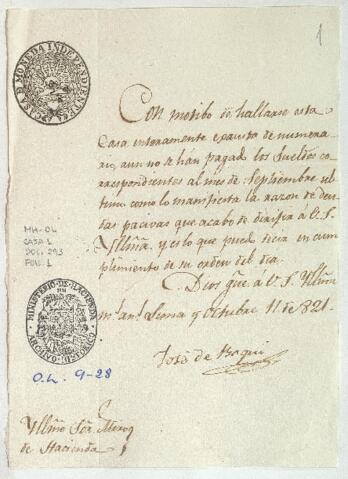 1
CASA DE MONEDA INDEPENDIENTE
Con motibo de hallarse esta
Casa enteramente exausta de numera-
rio, aun no se han pagado los sueldos co-
rrespondientes al mes de Septiembre ul-
timo como lo manifiesta la razon de deu-
das pacivas que acabo de dirijir á V.S.
Yllmã. y es lo que puedo decir en cum-
plimiento de su orden del dia.
Dios gue. á V.S. Yllmã
ms. ans. Lima y Octubre 11 de 821.
José de Boqui
MH-OL
CAJA 1
DOC. 293
FOL. 1
MINISTERIO DE HACIENDA
ARCHIVO HISTORICO
O.L. 9-28
Yllmõ Sõr
de Hacienda